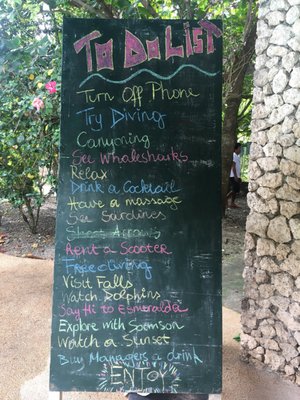 To Do LIST
Turn Off Phone
Try Diving
Canyoning
See Whalesharks
Relax
Drink a Cocktail
Have a massage
See Sardines
Shoot Arrows
Rent a Scooter
Free-diving
Visit Falls
Watch Dolphins
Say Hi to Esmeralda
Explore with Samson
Watch a Sunset
Buy Managers a drink
ENJOY